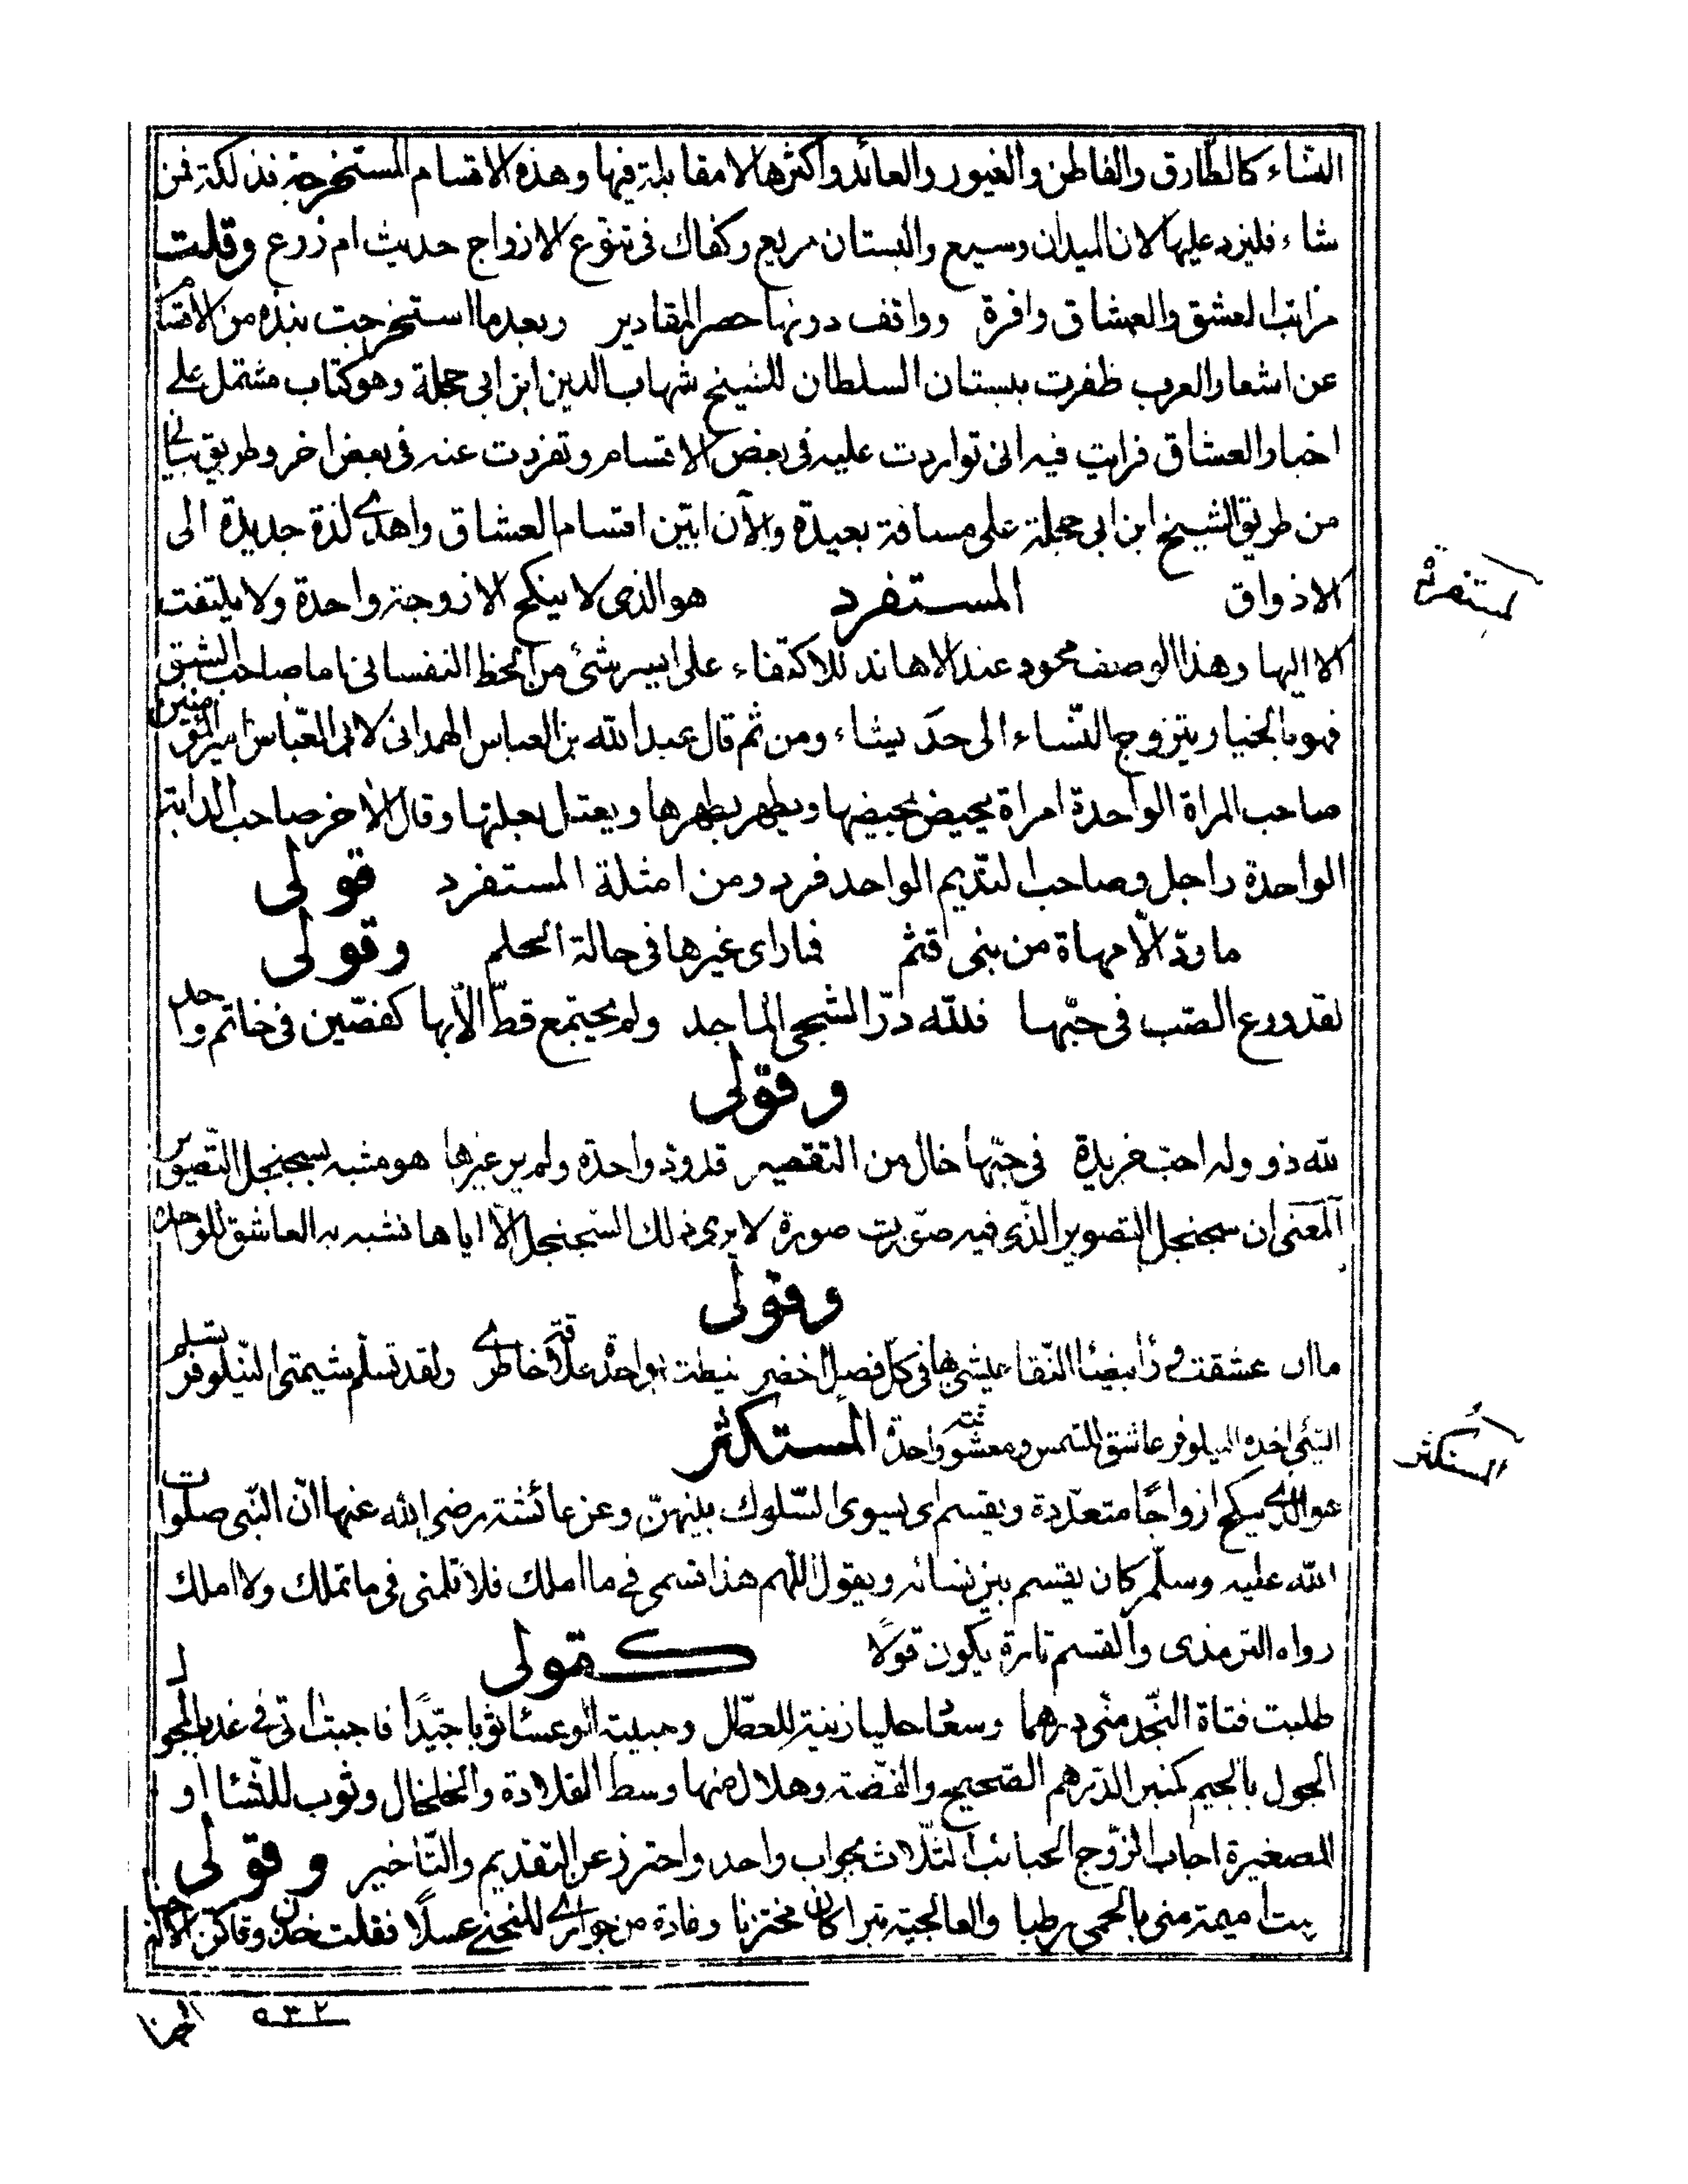 النساء كالطارق والفاطن والغيور والعائد واكثرها لا مقابلة فيها وهذه الاقسام المستخرجة فذلكة فمن
شاء فليزد عليها لان الميدان وسيع والبستان مريع وكفاك فى تنوع الازواج حديث ام زرع وقلت
مراتب العشق والعشاق وافرة وواقف دونها حصر المقادير وبعد ما استخرجت نبذة من الاقسام
عن اشعار العرب ظفرت ببستان السلطان للشيخ شهاب الدين ابن ابى حجلة وهو كتاب مشتمل على
اخبار العشاق فرايت فيه انى تواردت عليه فى بعض الاقسام وتفردت عنه فى بعض اخر وطريق بيانى
من طريق الشيخ ابن ابى حجلة على مسافة بعيدة والآن ابيّن اقسام العشاق واهدى لذة جديدة الى
الاذواق المستفرد هو الذى لا ينكح الا زوجة واحدة ولا يلتفت
المستفرد
الا اليها وهذا الوصف محمود عند الاهاند للاكتفاء على ايسر شئ من الحظ النفسانى اما صاحب الشبق
فهو بالخيار يتزوج النّساء الى حدّ يشاء ومن ثم قال عبد الله بن العباس الهمدانى لابى العبّاس امير المؤمنين
صاحب المراة الواحدة امراة يحيض بحيضها ويطهر بطهرها ويعتل بعلتها وقال الآخر صاحب الدابة
الواحدة راجل وصاحب النديم الواحد فرد ومن امثلة المستفرد قولى
ما ودّ الّا مهاة من بنى قثم فما راى غيرها فى حالة الحلم وقولى
لقد ورع الصّب فى حبّها فللّه درّ الشجى الماجد ولم يجتمع قطّ الّا بها كفصّين فى خاتم واحد
وقولى
لله ذو وله احبّ فريدة فى حبّها خال من التقصير قد ودّ واحدة ولم ير غيرها هو مشبه بسجنجل التّصوير
المعنى ان سجنجل التصوير الذّى فيه صوّرت صورة لا يرى ذلك السّجنجل الّا اياها فشبه به العاشق للواحدة
وقولى
ما ان عشقت بيضاء النّقا عيشى بها فى كلّ فصل اخضر نيطت بواحدة علاقة خاطرى ولقد تسلّم شيمتى النّيلوفر
النيلوفر عاشق الشمس ومعشوقته واحدة المستكثر
المستكثر
هو الذى ينكح ازواجًا متعدّدة ويقسم اى يسوى السّلوك بينهنّ وعن عائشة رضى الله عنها انّ النّبى صلوات
الله عليه وسلّم كان يقسم بين نسائه ويقول اللّهم هذا قسمى فى ما املك فلا تلمنى فى ما تملك ولا املك
رواه الترمذى والقسم تارة يكون قولًا كقولى
طلبت فتاة النّجد منّى درهما وسعاد حليا زينة للعطّل وحبيبة الوعساء ثوبا جيّدًا فاجبت اتى فى غد بالمجول
المجول بالجيم كمنبر الدّرهم الصّحيح والفضّة وهلال منها وسط القلادة والخلخال وثوب للنّساء او
للصغيرة اجاب الزّوج الحبائب الثّلاث بجواب واحد واحترز عن التقديم والتّأخير وقولى
ميمة منى بالحمى رطبا والعالجيّة تبرا كان مختزنا وغادة من جوارى المنحنى عسلًا فقلت
٥٣٢